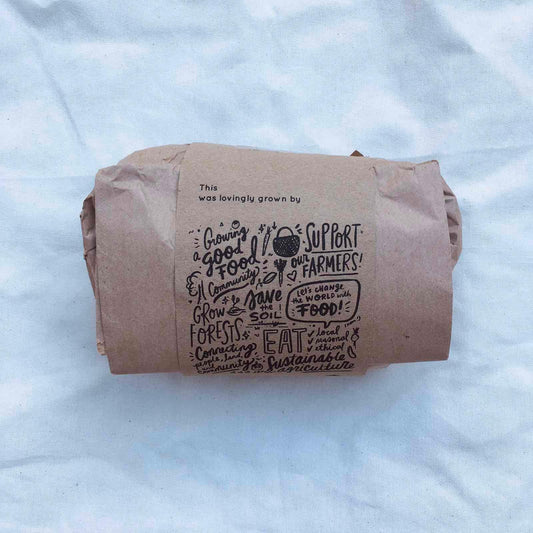 This
was lovingly grown by
a Growing
good
FOOD
Community
SUPPORT
our
FARMERS!
Save
the
SOIL
Let's CHANGE
the WORLD with
FOOD!
GROW
FORESTS
EAT
local
seasonal
ethical
Connecting
people, land,
and
community
Sustainable
agriculture